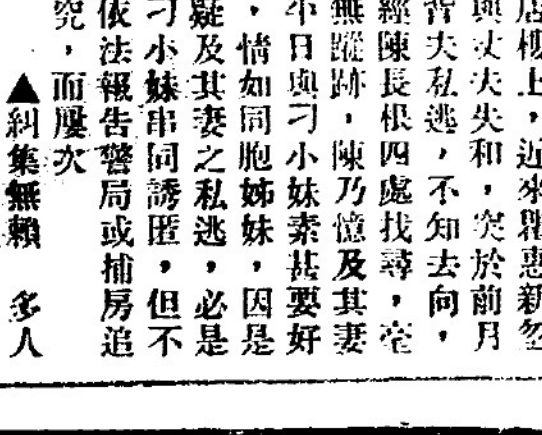 店樓上，近來瞿惠新忽
與丈夫失和，突於前月
背夫私逃，不知去向，
經陳長根四處找尋，毫
無蹤跡，陳乃憶及其妻
平日與刁小妹素甚要好
，情如同胞姊妹，因是
疑及其妻之私逃，必是
刁小妹串同誘匿，但不
依法報告警局或捕房追
究，而屢次
▲糾集無賴　多人